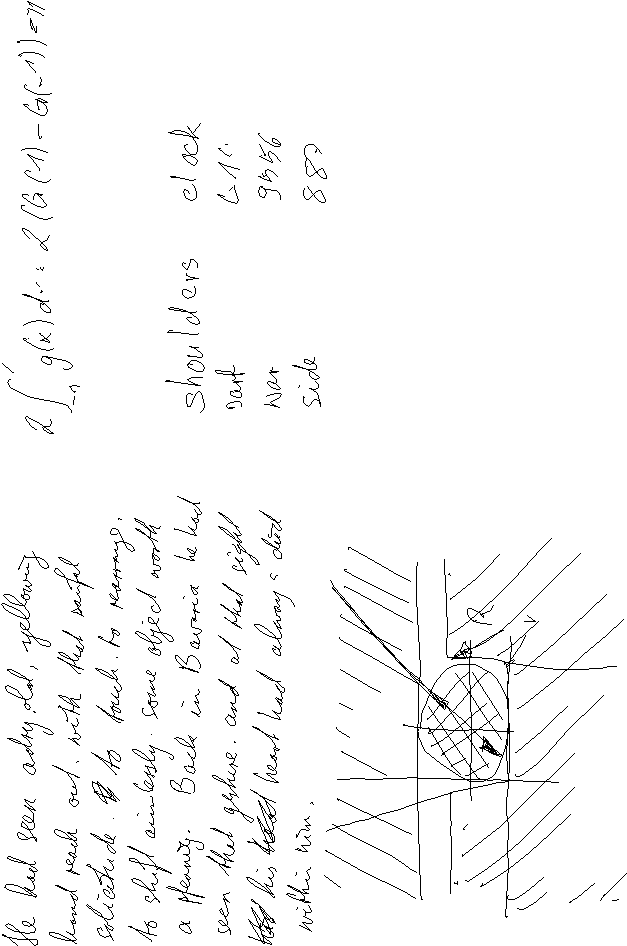 He had seen a dry, old, yellowing
hand reach out, with that sinful
solicitude, to touch, to rearrange,
to shift aimlessly some object worth
a pfennig. Back in Bavaria he had
seen that gesture, and at that sight
his heart had always died
within him.
2 ∫₋₁¹ g(x) d... = 2 (G(1) - G(-1)) = π
Shoulders clock
war 9556
side
R